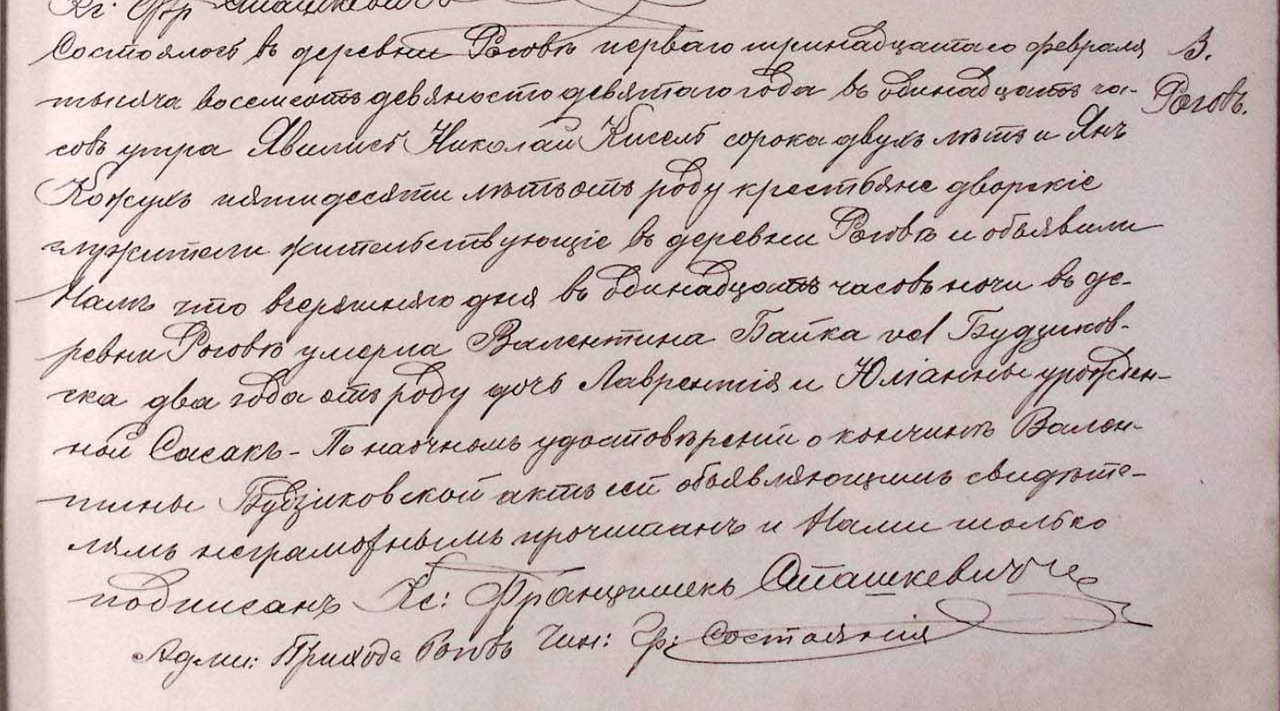 Кс: Фр Сташкевичъ
Состоялось въ деревни Роговѣ перваго тринадцатаго февраля
3.
тысяча восемсотъ девяностодевятаго года въ одинадцать ча-
Роговъ.
совъ утра Явились Николай Кисель сорока двухъ лѣтъ и Янъ
Кожухъ пятидесяти лѣтъ отъ роду крестьяне дворскіе
служители жительствующіе въ деревни Роговѣ и объявили
Намъ что вчерашняго дня въ одинадцать часовъ ночи въ де-
ревни Роговѣ умерла Валентина Байка vel Будзиков-
ска два года отъ роду дочь Лаврентія и Юліанны урожден-
ной Сасакъ - По наочномъ удостовѣреніи о кончинѣ Вален-
тины Будзиковской актъ сей объявляющимъ свидѣте-
лямъ неграмотнымъ прочитанъ и Нами только
подписанъ Кс: Францишекъ Сташкевичъ
Адми: Прихода Роговъ Чин: Гр: Состоянія